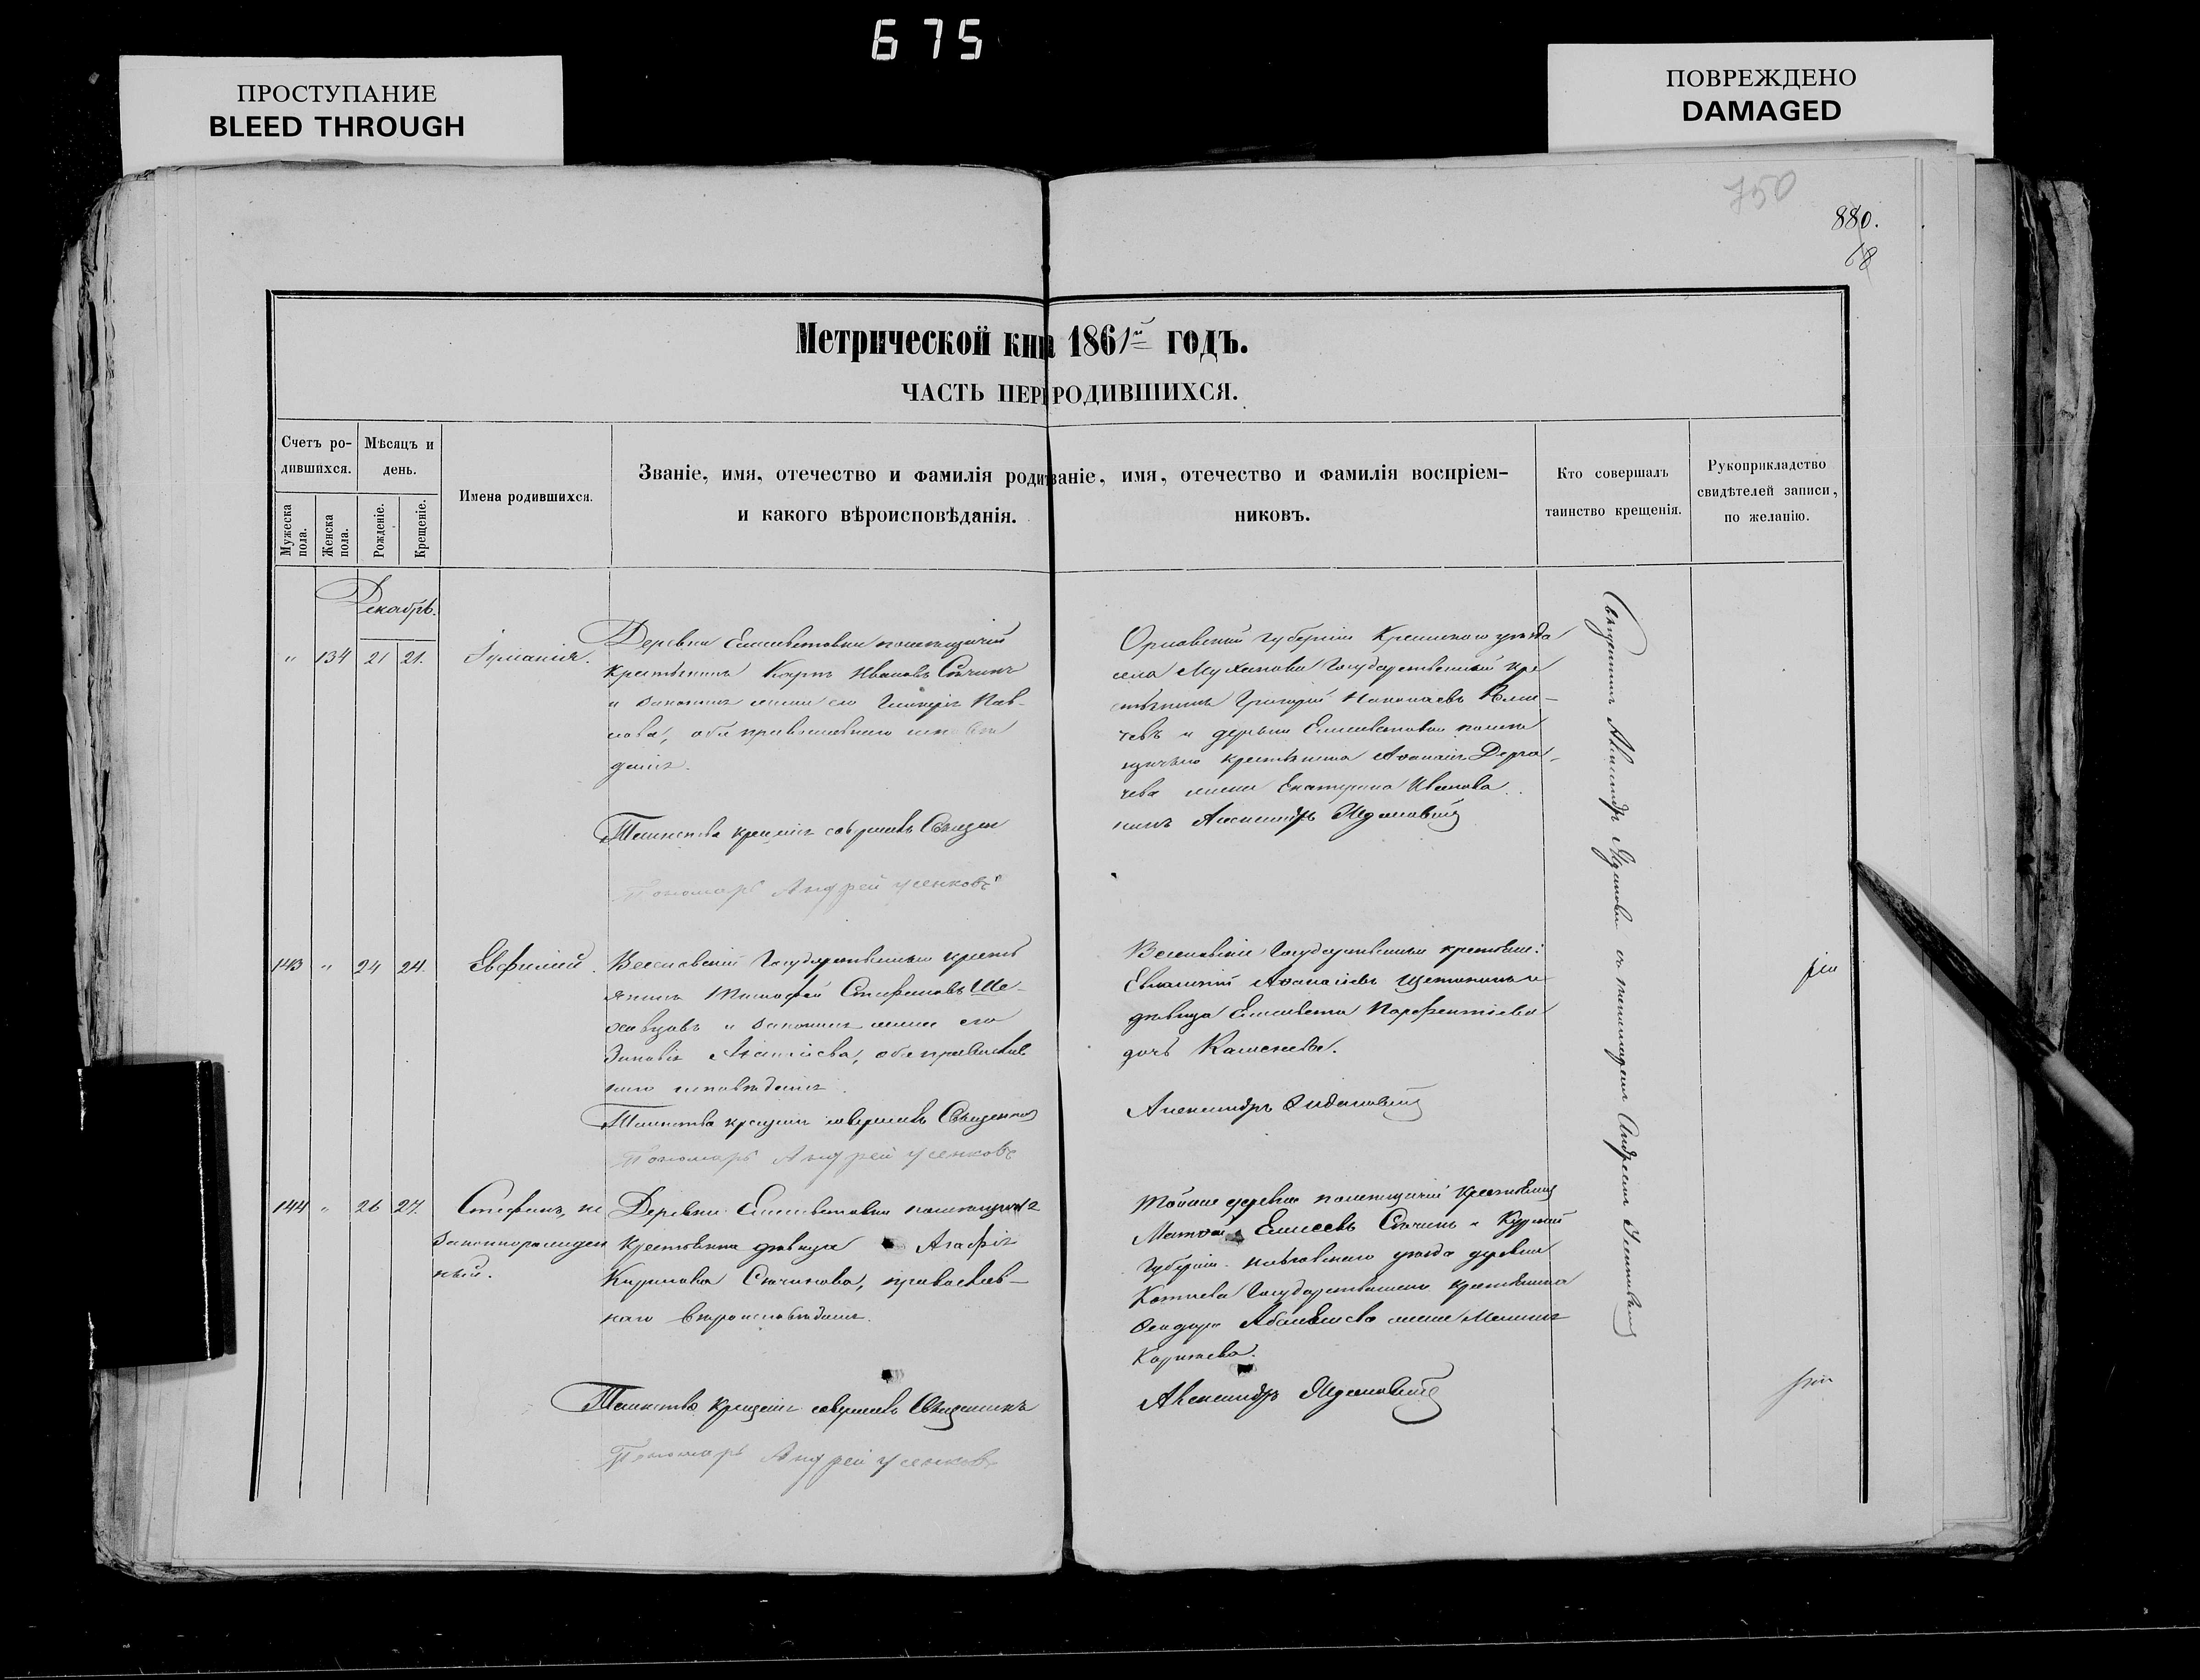 675
ПРОСТУПАНИЕ
BLEED THROUGH
ПОВРЕЖДЕНО
DAMAGED
750
880.
68
Метрической кни 1861 годъ.
ЧАСТЬ ПЕР РОДИВШИХСЯ.
Счетъ ро-
дившихся.
Мужеска пола.
Женска пола.
Мѣсяцъ и
день.
Рожденіе.
Крещеніе.
Имена родившихся.
Званіе, имя, отечество и фамилія родит
и какого вѣроисповѣданія.
ваніе, имя, отечество и фамилія воспріем-
никовъ.
Кто совершалъ
таинство крещенія.
Рукоприкладство
свидѣтелей записи,
по желанію.
Декабрь.
" 134 21 21. Іуліанія.
Деревни Елисаветовки помѣщичій
крестьянинъ Карпъ Ивановъ Сѣчинъ
и законная жена его Гликерія Пав-
лова, оба православнаго исповѣ
данія.
Таинство крещенія совершилъ Священ
Пономарь Андрей Усенковъ
Орловской губерніи Кромскаго уѣзда
села Муханова Государственный кре
стьянинъ Григорій
чевъ и деревни Елисаветовки помѣ
щичьяго крестьянина Аѳанасія Дерга-
чева жена Екатерина Иванова.
никъ Александръ
143 " 24 24. Евфимій.
Веселовскій Государственный кресть
янинъ Тимофей Стефановъ Ше-
ховцовъ и законная жена его
Зиновія, оба православ
наго исповѣданія.
Таинство крещенія совершилъ Священник
Пономарь Андрей Усенковъ
Веселовскіе Государственные крестьяне:
Евлампій Аѳанасіевъ Щетининъ и
дѣвица Елисавета Парфентіева
дочь
Александръ
144 " 26 27. Стефанъ, не
законнорожден
ный.
Деревни Елисаветовки помѣщичья
крестьянка дѣвица Агафія
Кирилова Сѣчинова, православ-
наго вѣроисповѣданія.
Таинство крещенія совершилъ Священникъ
Пономарь Андрей Усенковъ
Тойже деревни помѣщичій крестьянинъ
Матѳей Елисеевъ Сѣчинъ и Курской
губерніи уѣзда деревни
Государственнаго крестьянина
Ѳеодора жена Меланія
Александръ
Священникъ Александръ съ пономаремъ Андреемъ